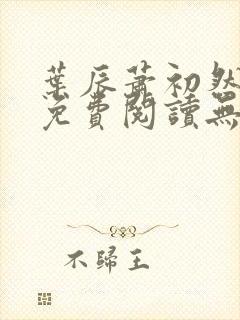 葉辰蕭初然
免費閱讀無
不歸王